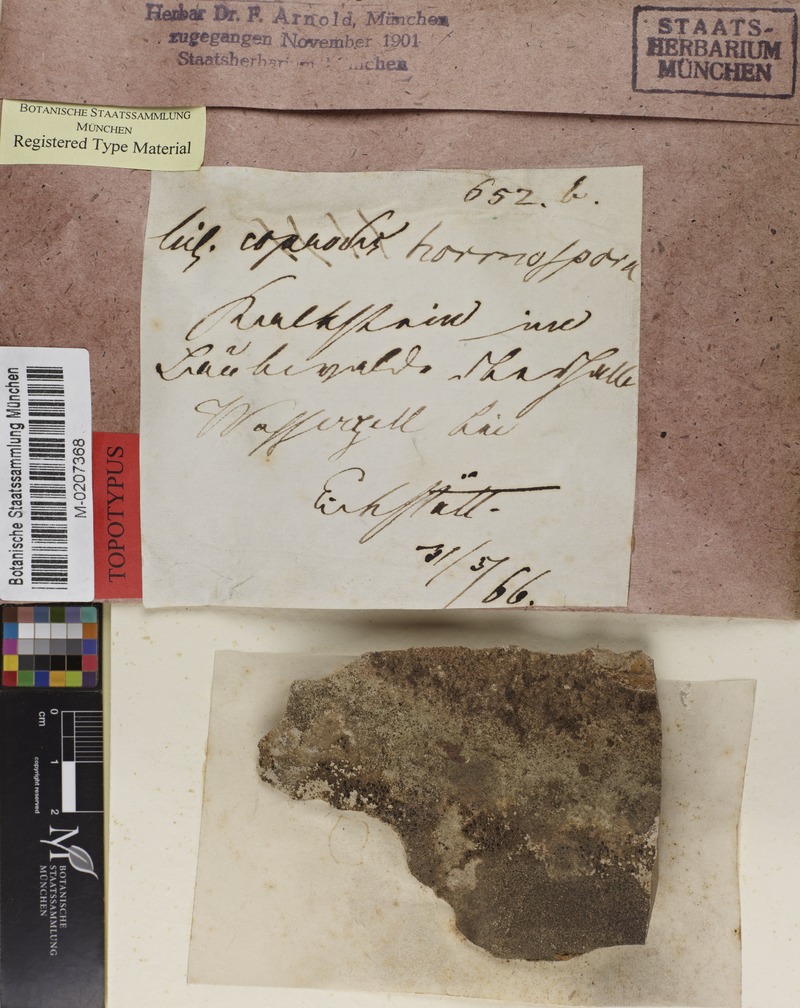 Herbar Dr. F. Arnold, München
zugegangen November 1901
Staatsherbarium München
STAATS-
HERBARIUM
MÜNCHEN
BOTANISCHE STAATSSAMMLUNG
MÜNCHEN
Registered Type Material
652. b.
hormospora
Kalkstein im
Wasserzell bei
Eichstätt.
31/5/66.
Botanische Staatssammlung München
M-0207368
TOPOTYPUS
0 1 2
cm
copyright reserved
BOTANISCHE
STAATSSAMMLUNG
MÜNCHEN